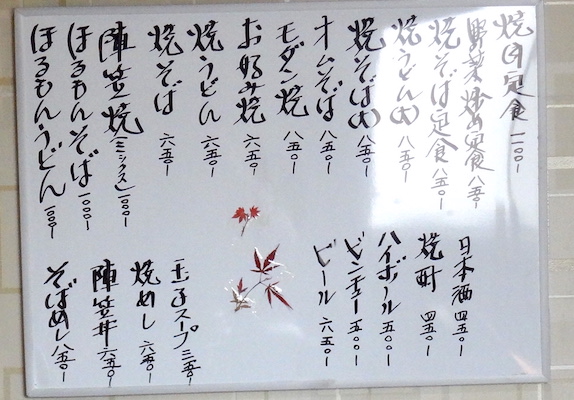 焼肉定食 一一〇〇-
野菜炒め定食 八五〇-
焼そば定食 八五〇-
焼うどん(大) 八五〇-
焼そば(大) 八五〇-
オムそば 八五〇-
モダン焼 八五〇-
お好み焼 六五〇-
焼うどん 六五〇-
焼そば 六五〇-
陣笠焼(ミックス) 一〇〇〇-
ほるもんそば 一〇〇〇-
ほるもんうどん 一〇〇〇-
日本酒 四五〇-
焼酎 四五〇-
ハイボール 五〇〇-
ビンチュー 五〇〇-
ビール 六五〇-
玉子スープ 三五〇-
焼めし 六五〇-
陣笠丼 六五〇-
そばめし 八五〇-